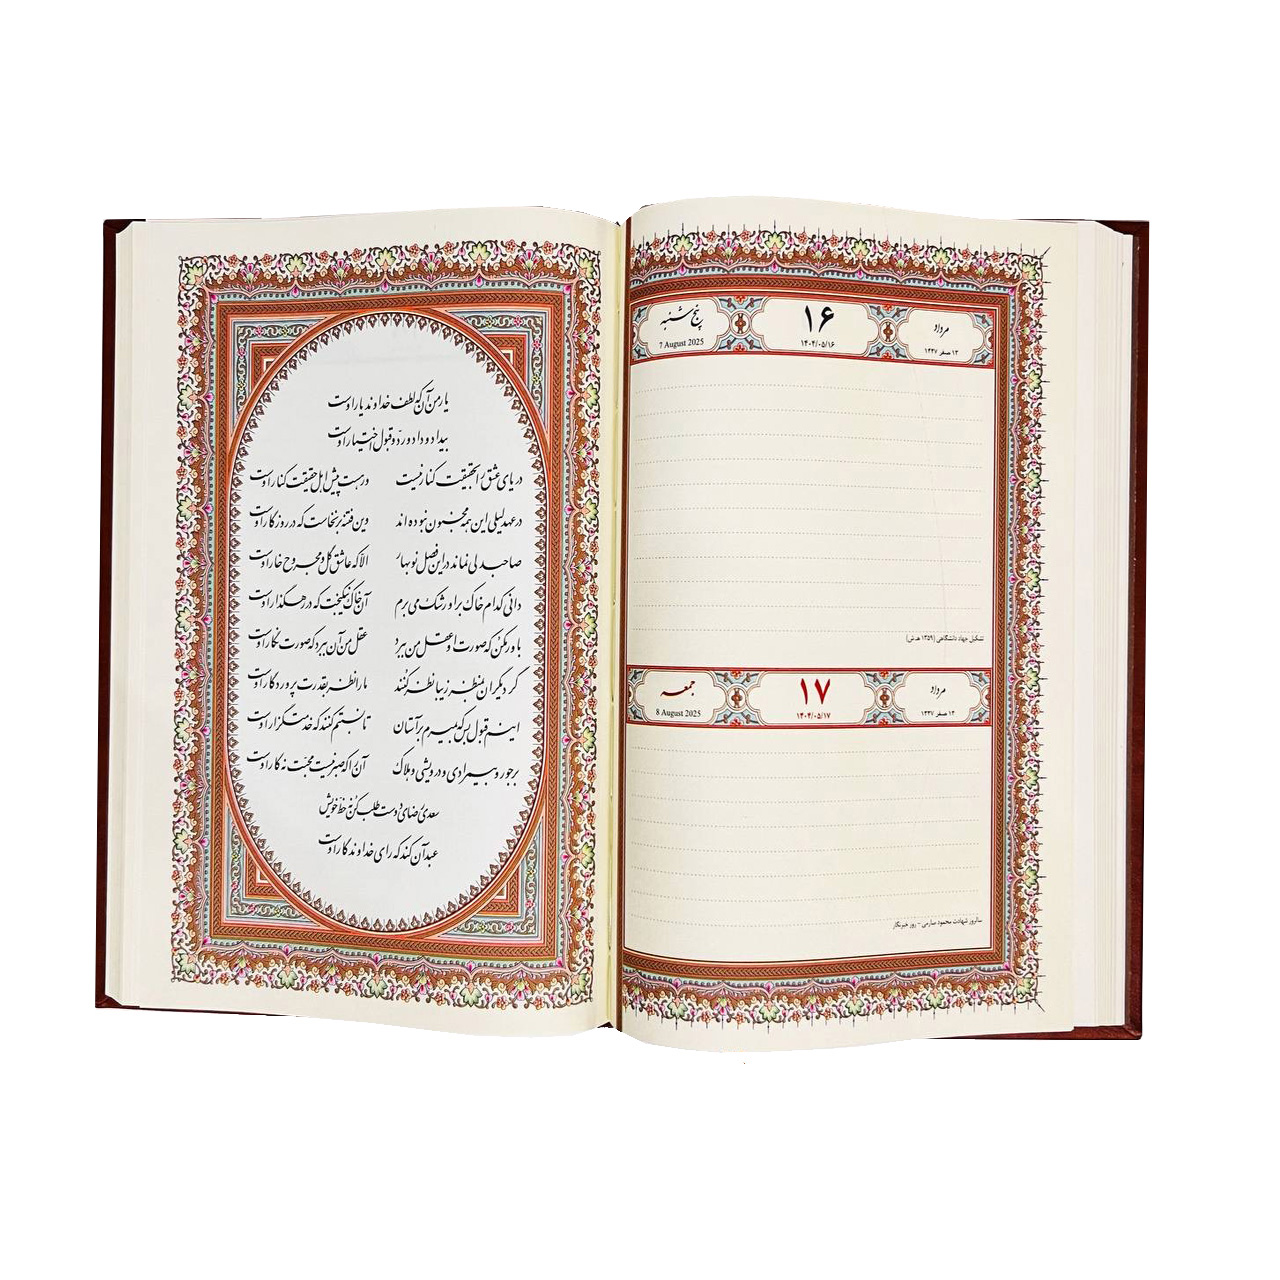 مرداد
۱۳ صفر ۱۴۴۷
۱۶
۱۴۰۴/۰۵/۱۶
پنج‌شنبه
7 August 2025
تشکیل جهاد دانشگاهی (۱۳۵۹ هـ ش)
مرداد
۱۴ صفر ۱۴۴۷
۱۷
۱۴۰۴/۰۵/۱۷
جمعه
8 August 2025
سالروز شهادت محمود صارمی - روز خبرنگار
یار من آن که لطف خداوند یار اوست
بیداد و داد و ردّ و قبول اختیار اوست
دریای عشق را به حقیقت کنار نیست ور هست پیش اهل حقیقت کنار اوست
در عهد لیلی این همه مجنون نبوده اند وین فتنه برنخاست که در روزگار اوست
صاحبدلی نماند در این فصل نوبهار الا که عاشق گل و مجروح خار اوست
دانی کدام خاک بر او رشک می برم آن خاک نیکبخت که در رهگذار اوست
باور مکن که صورت او عقل من ببرد عقل من آن ببرد که صورت نگار اوست
گر دیگران به منظر زیبا نظر کنند ما را نظر به قدرت پروردگار اوست
اینم قبول بس که بمیرم بر آستان تا نسبتم کنند که خدمتگزار اوست
بر جور و بی مرادی و درویشی و هلاک آن را که صبر نیست محبّت نه کار اوست
سعدی رضای دوست طلب کن نه حظّ خویش
عبد آن کند که رای خداوندگار اوست